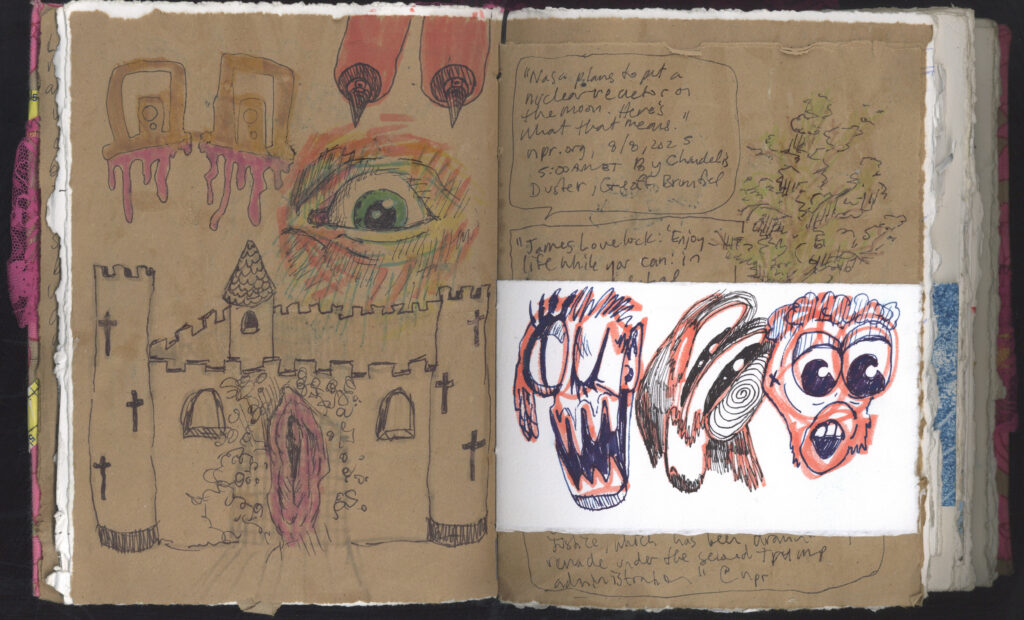 "Nasa plans to put a
nuclear reactor on
the moon. Here's
what that means."
npr.org, 8/8, 2025
5:00AM ET By Chandelis
Duster, Geoff Brumfiel
"James Lovelock: 'Enjoy
life while you can: in
Justice, which has been
remade under the second trump
administration" @npr